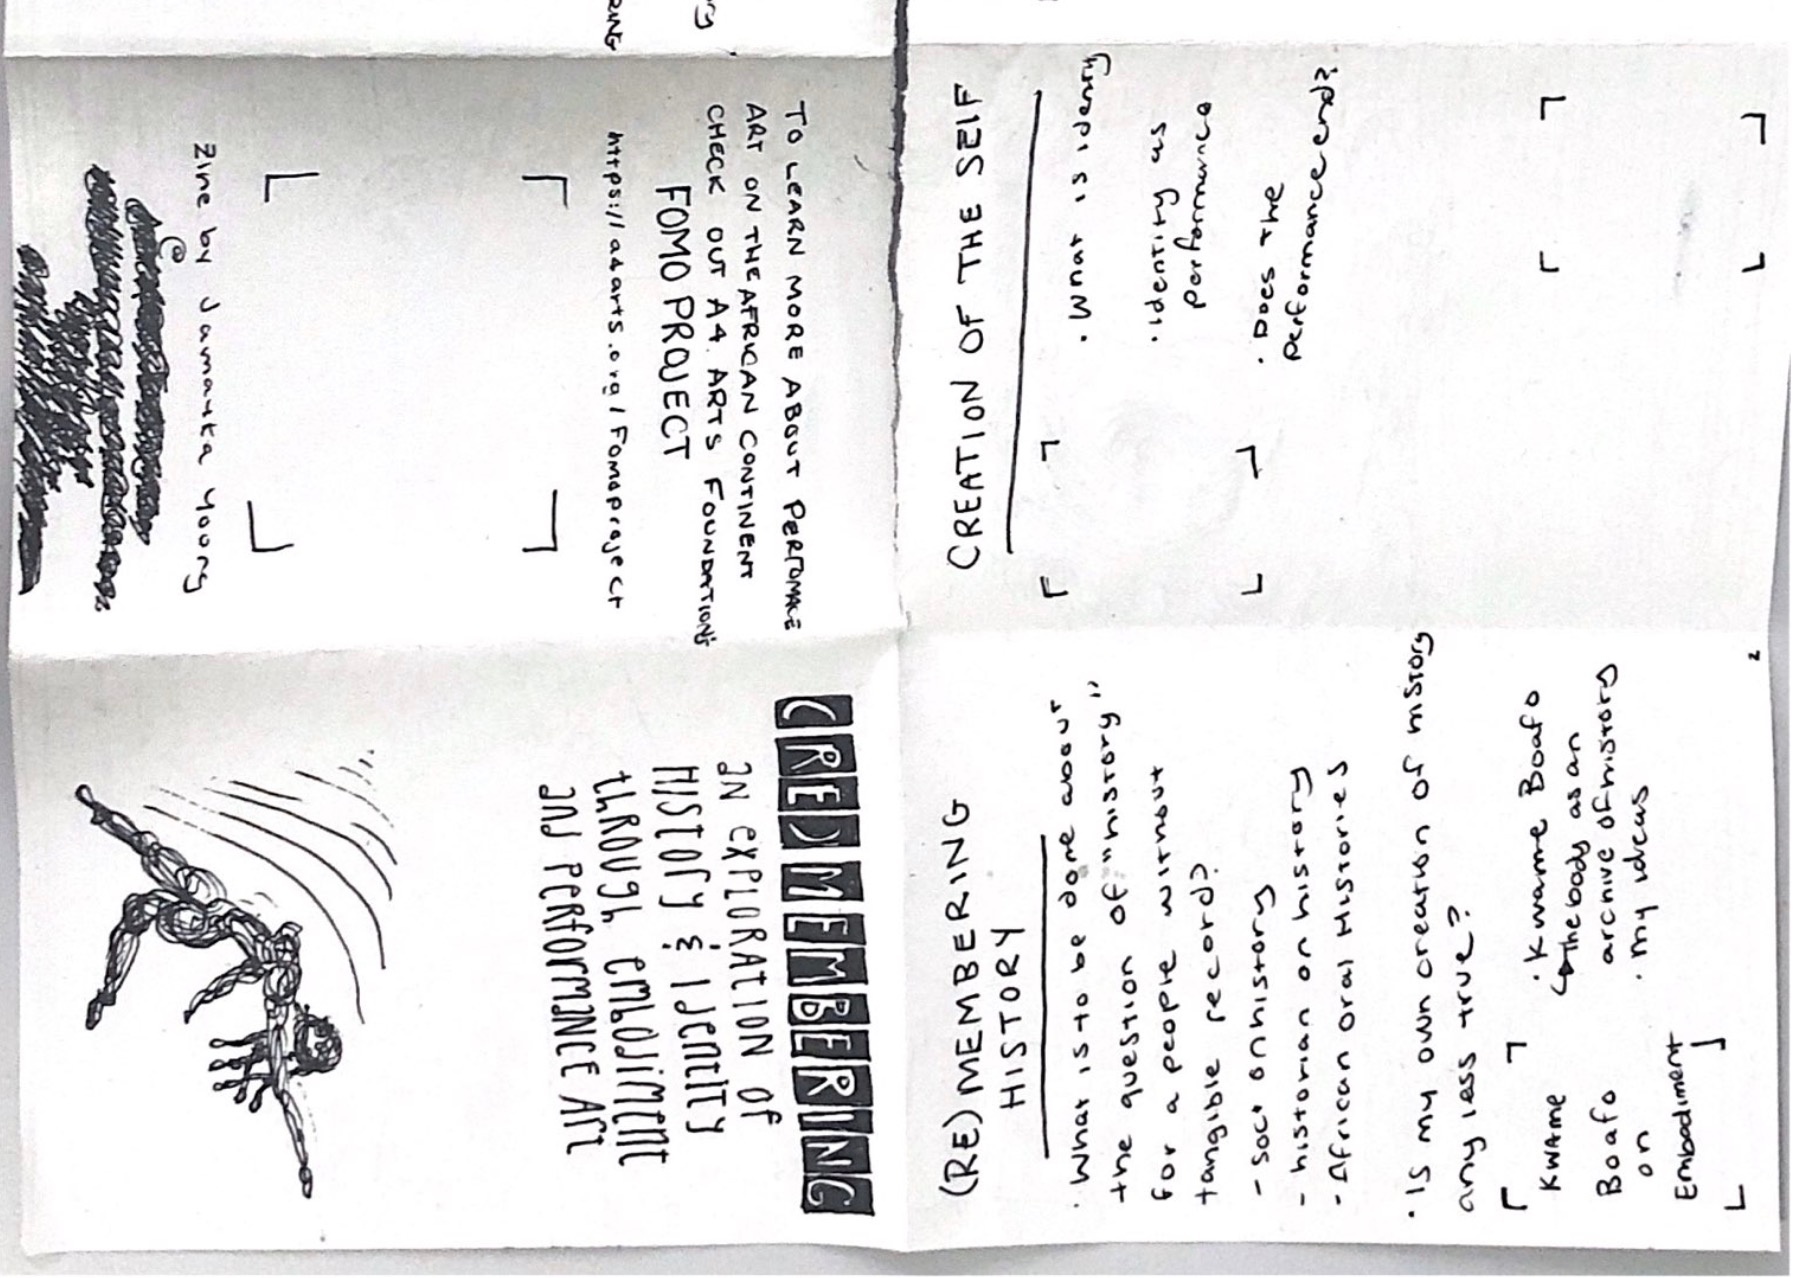 (RE)MEMBERING
AN EXPLORATION OF
HISTORY & IDENTITY
THROUGH EMBODIMENT
AND PERFORMANCE ART
TO LEARN MORE ABOUT PERFOMANCE
ART ON THE AFRICAN CONTINENT
CHECK OUT A4 ARTS FOUNDATION'S
FOMO PROJECT
https://a4arts.org/Fomoproject
Zine by Jamaıka Young
@
(RE)MEMBERING
HISTORY
· What is to be done about
the question of "history"
for a people without
tangible record?
- soc' on history
- historian on history
- African oral Histories
· Is my own creation of history
any less true?
KWAMe
Boafo
on
Embodiment
· Kwame Boafo
↳ the body as an
archive of history
· my ideas
2
CREATION OF THE SELF
· What is identity
· Identity as
performance
· Does the
performance end?
RING